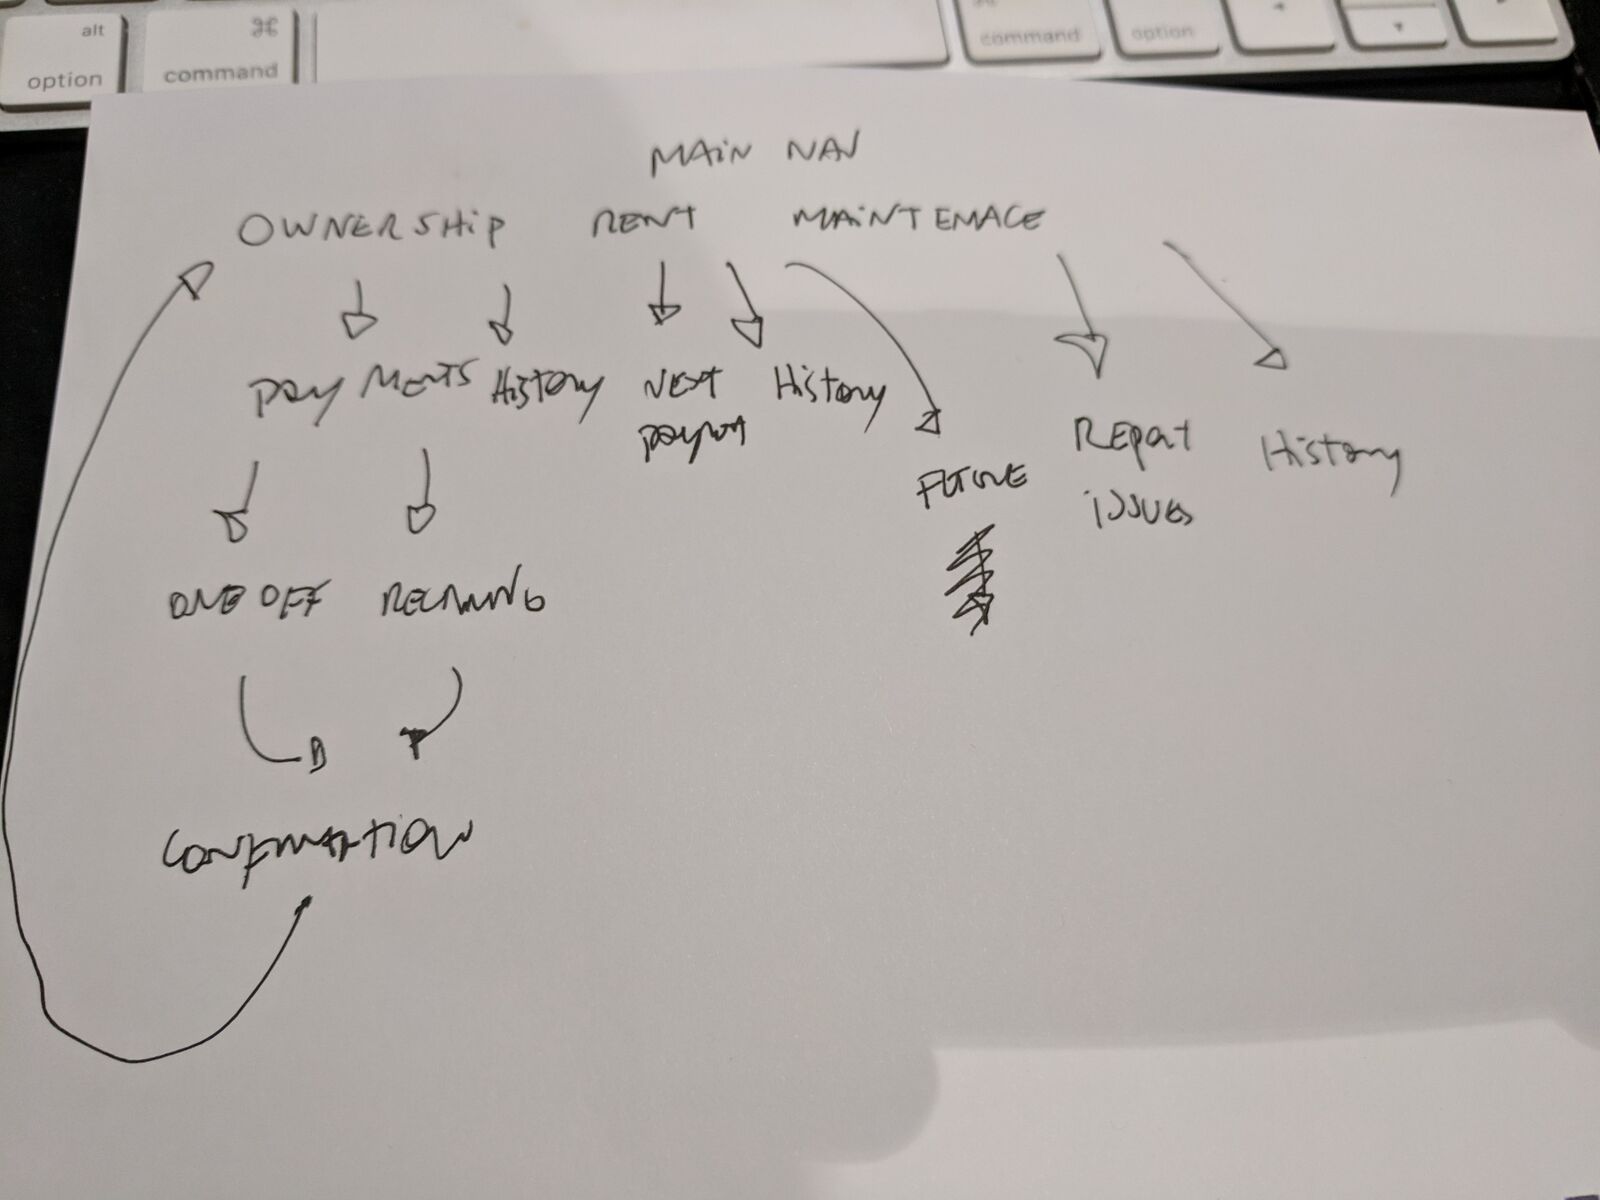 alt
option
⌘
command
command
option
MAiN NAV
OWNERSHiP RENT MAiNTEMACE
PAYMENTS History NEXT History
REPORT History
FUTURE
iSSUES
ONE OFF RECURRING
CONFIRMATION